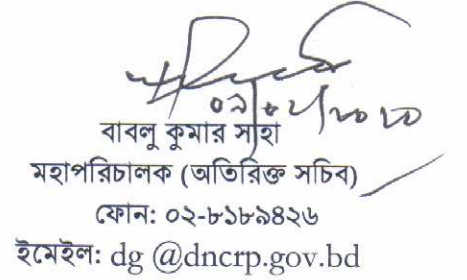 বাবলু কুমার সাহা
মহাপরিচালক (অতিরিক্ত সচিব)
ফোন: ০২-৮১৮৯৪২৬
ইমেইল: dg @dncrp.gov.bd